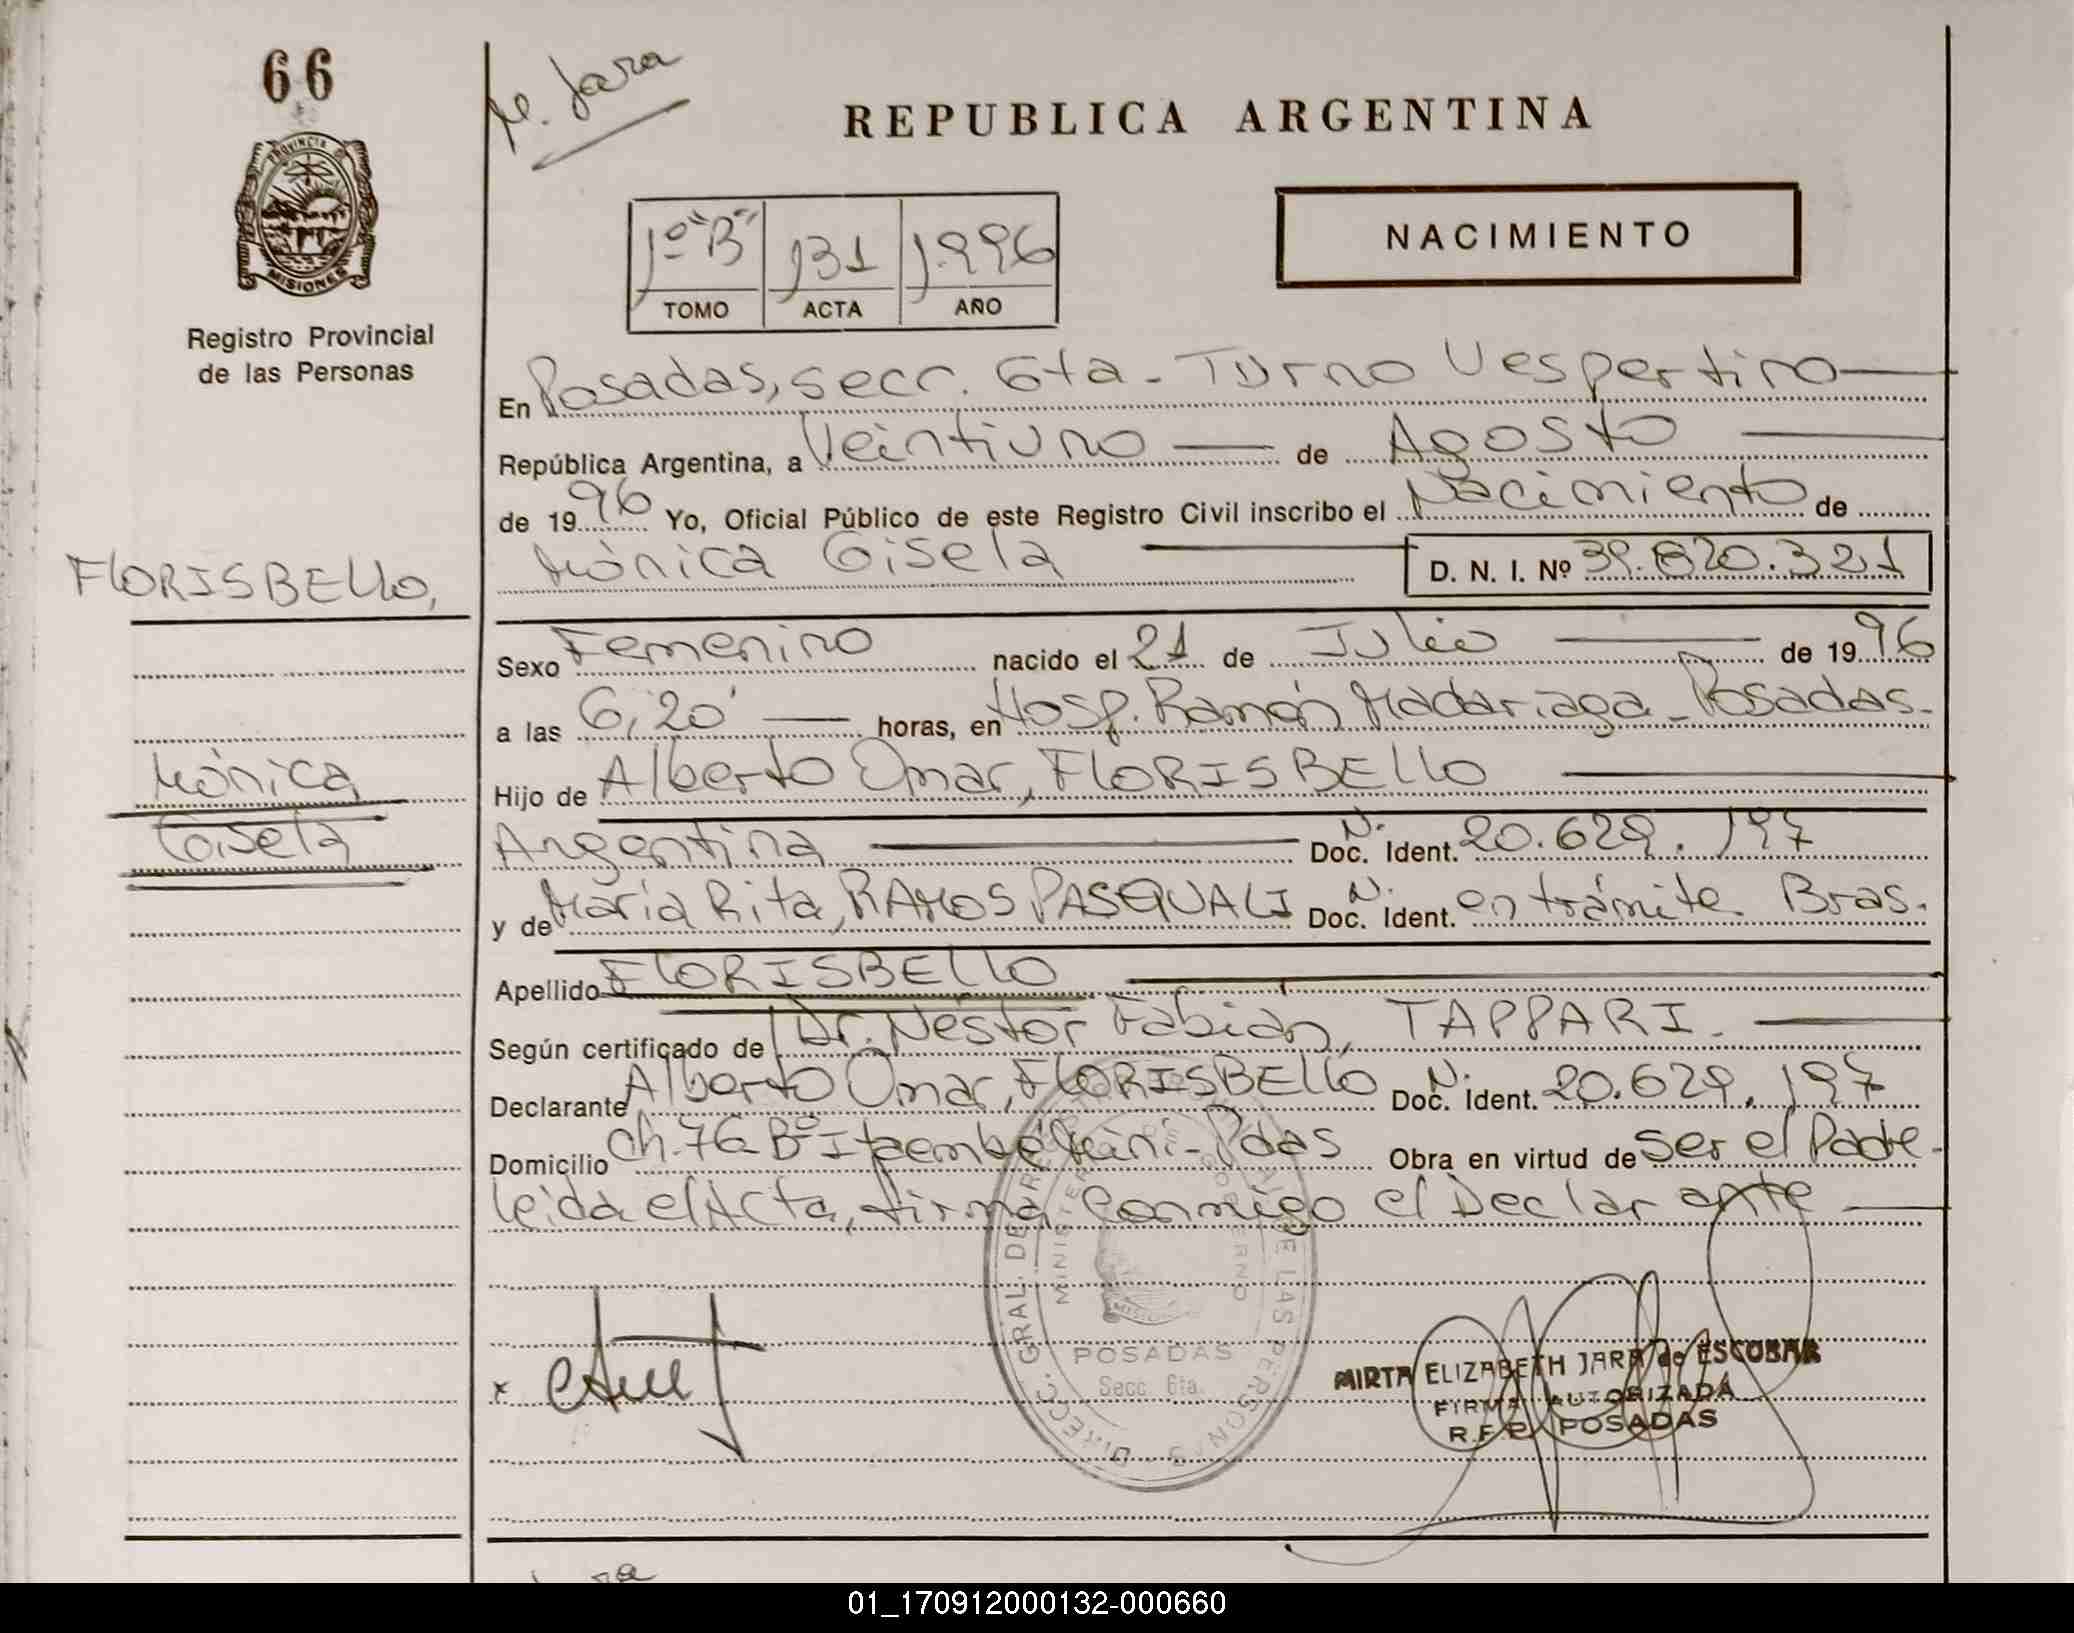 66
M. Jara
REPUBLICA ARGENTINA
PROVINCIA DE
MISIONES
Registro Provincial
de las Personas
1º "B" 131 1.996
TOMO ACTA AÑO
NACIMIENTO
En Posadas, secc. 6ta - Turno Vespertino
República Argentina, a Veintiuno de Agosto
de 1996 Yo, Oficial Público de este Registro Civil inscribo el Nacimiento de
Mónica Gisela D. N. I. Nº 39.820.321
FLORISBELLO,
Mónica
Gisela
Sexo Femenino nacido el 21 de Julio de 1996
a las 6,20' horas, en Hosp. Ramón Madariaga - Posadas.
Hijo de Alberto Omar, FLORISBELLO
Argentina N. Doc. Ident. 20.629.197
y de María Rita, RAMOS PASQUALI N. Doc. Ident. en trámite Bras.
Apellido FLORISBELLO
Según certificado de Dr. Néstor Fabián, TAPPARI.
Declarante Alberto Omar, FLORISBELLO N. Doc. Ident. 20.629.197
Domicilio Ch. 76 Bº Itaembé Miní - Pdas Obra en virtud de ser el Padre -
leída el Acta, firma conmigo el Declarante
x
DIRECC. GRAL. DE LAS PERSONAS
MINISTERIO DE GOBIERNO
MISIONES
POSADAS
Secc. 6ta.
MIRTA ELIZABETH JARA de ESCOBAR
FIRMA AUTORIZADA
R.P.P. POSADAS
01_170912000132-000660